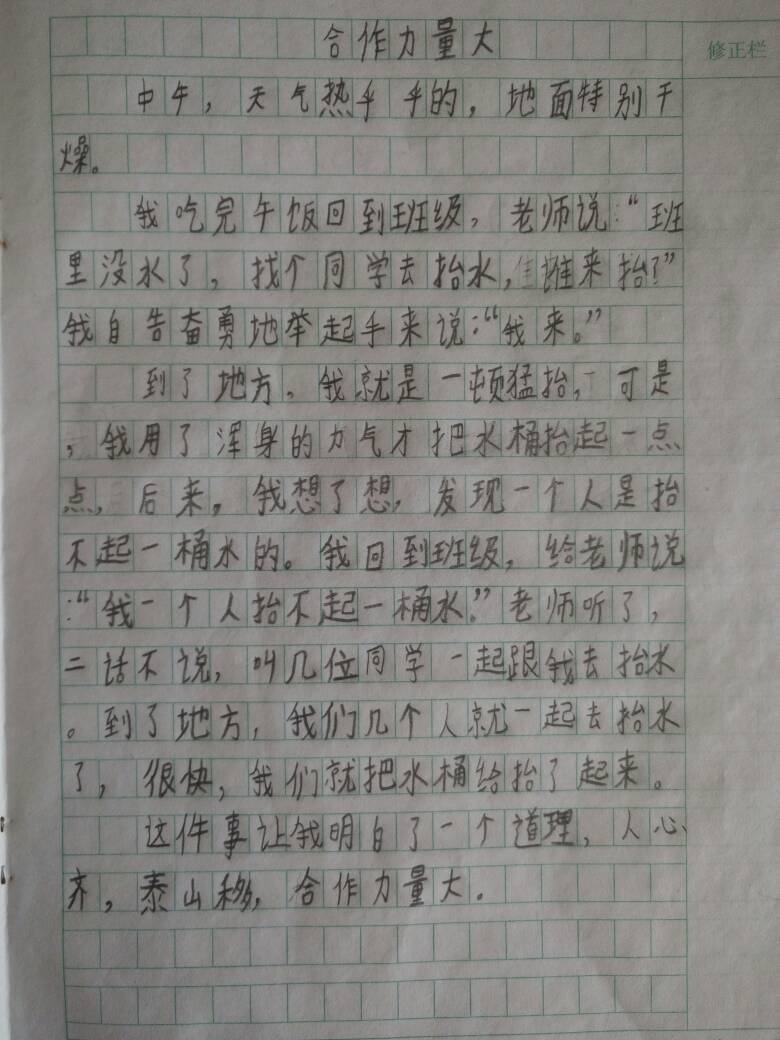 合作力量大
修正栏
中午，天气热乎乎的，地面特别干
燥。
我吃完午饭回到班级，老师说：“班
里没水了，找个同学去抬水，谁来抬？”
我自告奋勇地举起手来说：“我来。”
到了地方，我就是一顿猛抬，可是
，我用了浑身的力气才把水桶抬起一点
点，后来，我想了想，发现一个人是抬
不起一桶水的。我回到班级，给老师说
：“我一个人抬不起一桶水。”老师听了，
二话不说，叫几位同学一起跟我去抬水
。到了地方，我们几个人就一起去抬水
了，很快，我们就把水桶给抬了起来。
这件事让我明白了一个道理，人心
齐，泰山移，合作力量大．